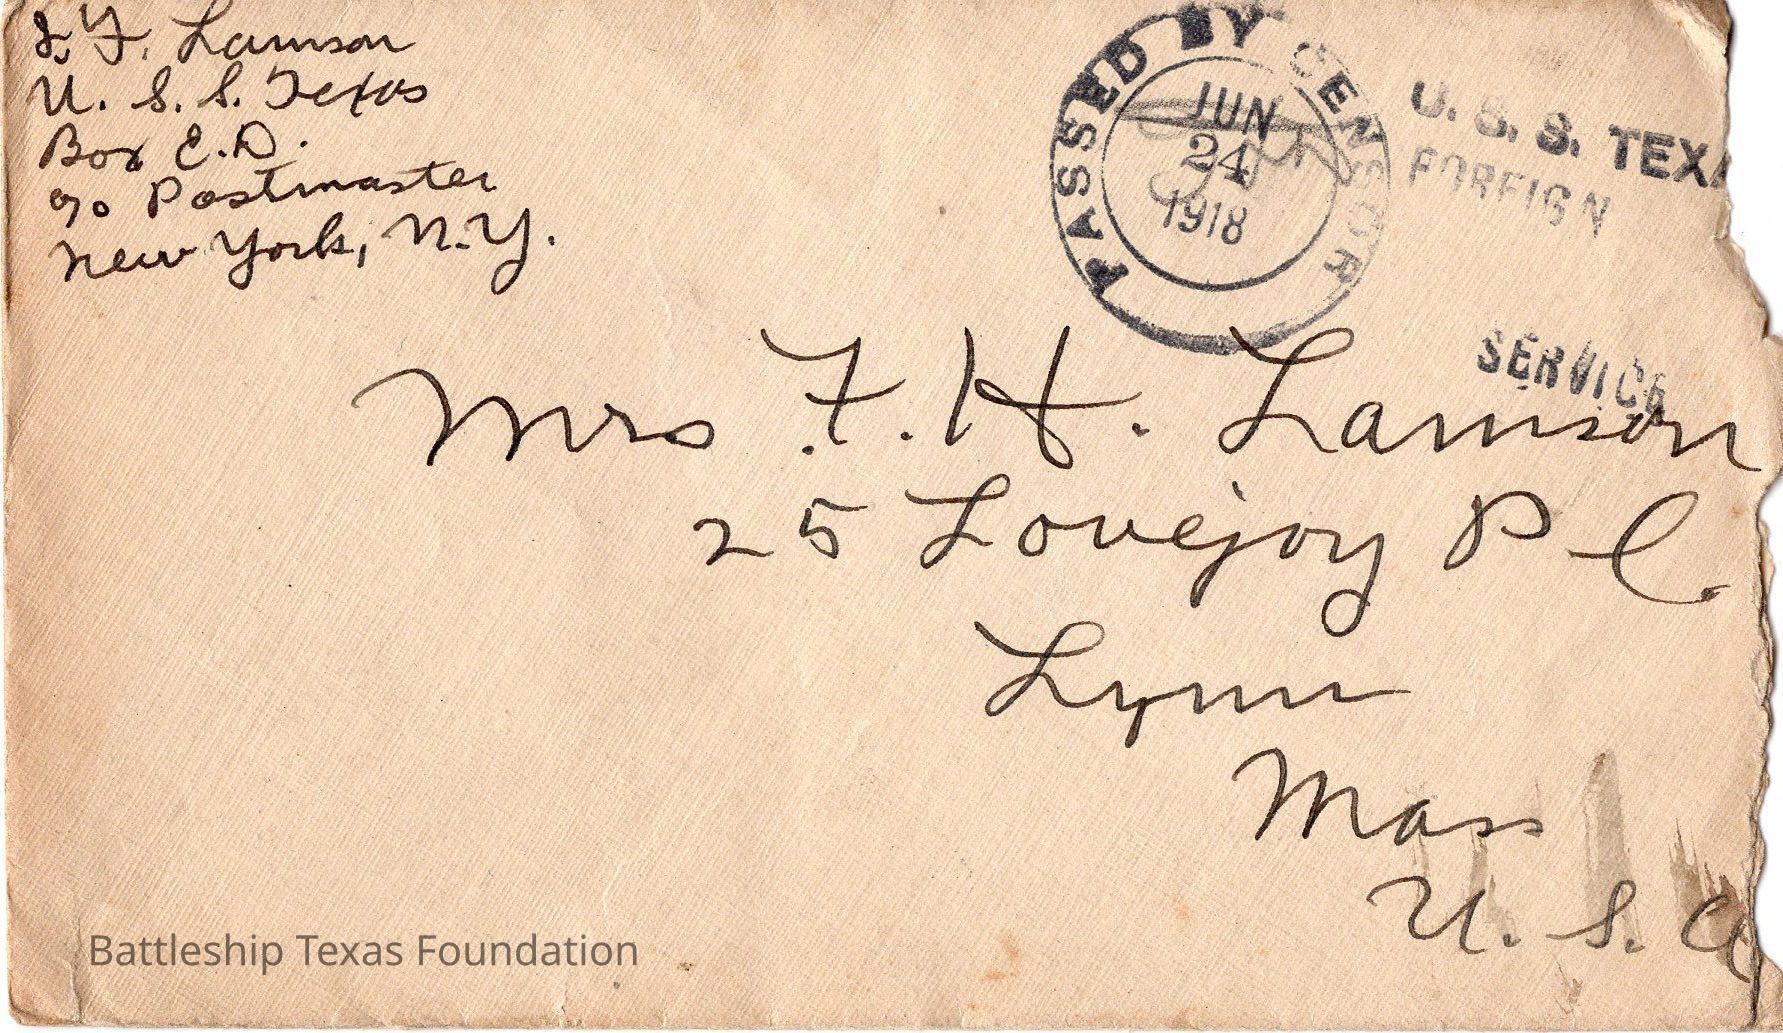 L. F. Lamson
U. S. S. Texas
Box E.D.
c/o Postmaster
New York, N.Y.
PASSED BY CENSOR
JUN
24
1918
U. S. S. TEXA
FOREIGN
SERVICE
Mrs F. H. Lamson
25 Lovejoy Pl.
Lynn
Mass
U. S. A
Battleship Texas Foundation